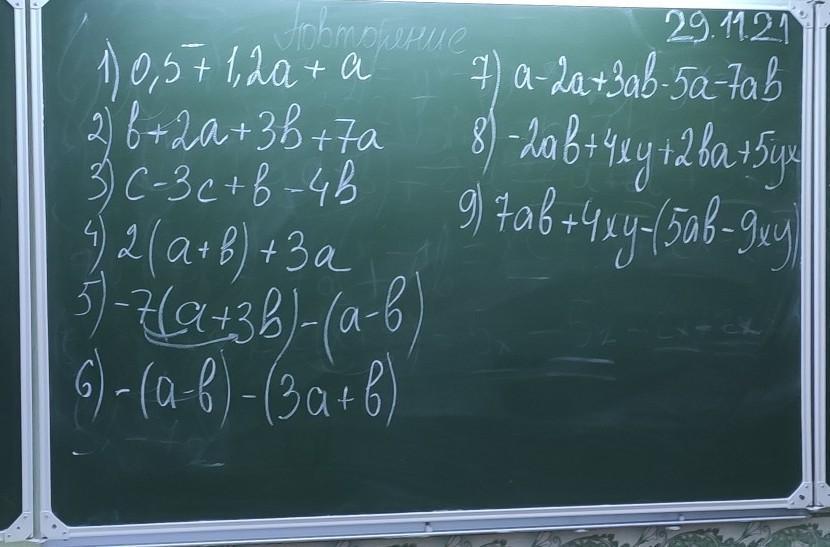 Повторение
29.11.21
1) 0,5 + 1,2a + a
2) b + 2a + 3b + 7a
3) c - 3c + b - 4b
4) 2(a + b) + 3a
5) -7(a + 3b) - (a - b)
6) -(a - b) - (3a + b)
7) a - 2a + 3ab - 5a - 7ab
8) -2ab + 4xy + 2ba + 5yx
9) 7ab + 4xy - (5ab - 9xy)